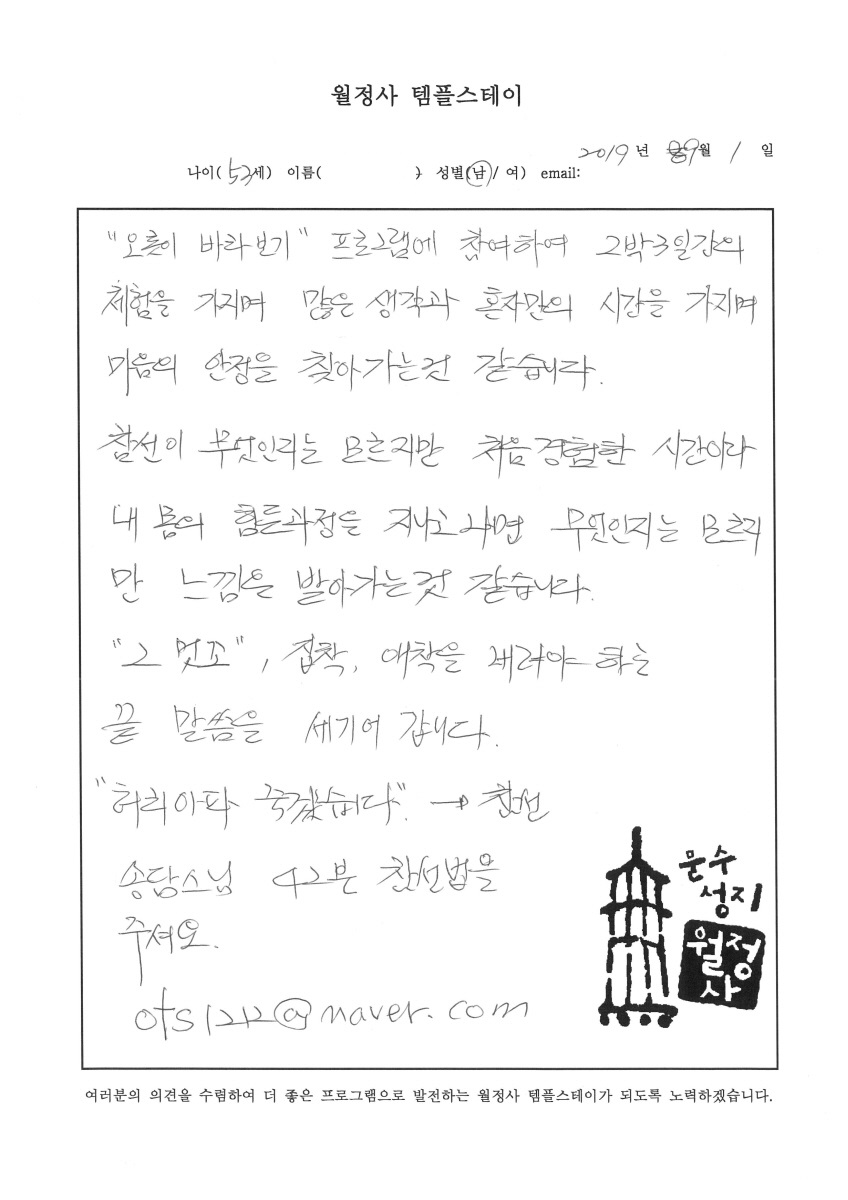 월정사 템플스테이
2019 년 9월 1 일
나이( 52세) 이름( ) 성별(남 / 여) email:
"오롯이 바라보기" 프로그램에 참여하여 2박3일간의
체험을 가지며 많은 생각과 혼자만의 시간을 가지며
마음의 안정을 찾아가는것 같습니다.
참선이 무엇인지는 모르지만 처음경험한 시간이라
내 몸의 힘든과정을 지나고나면 무엇인지는 모르지
만 느낌을 받아가는것 같습니다.
"그 멋조", 집착, 애착을 내려야 하는
끝 말씀을 세기어 갑니다.
"허리아파 죽겠습니다". → 참선
송담스님 42분 참선법을
주셔요.
ots1212@naver.com
문수
성지
월정
사
여러분의 의견을 수렴하여 더 좋은 프로그램으로 발전하는 월정사 템플스테이가 되도록 노력하겠습니다.